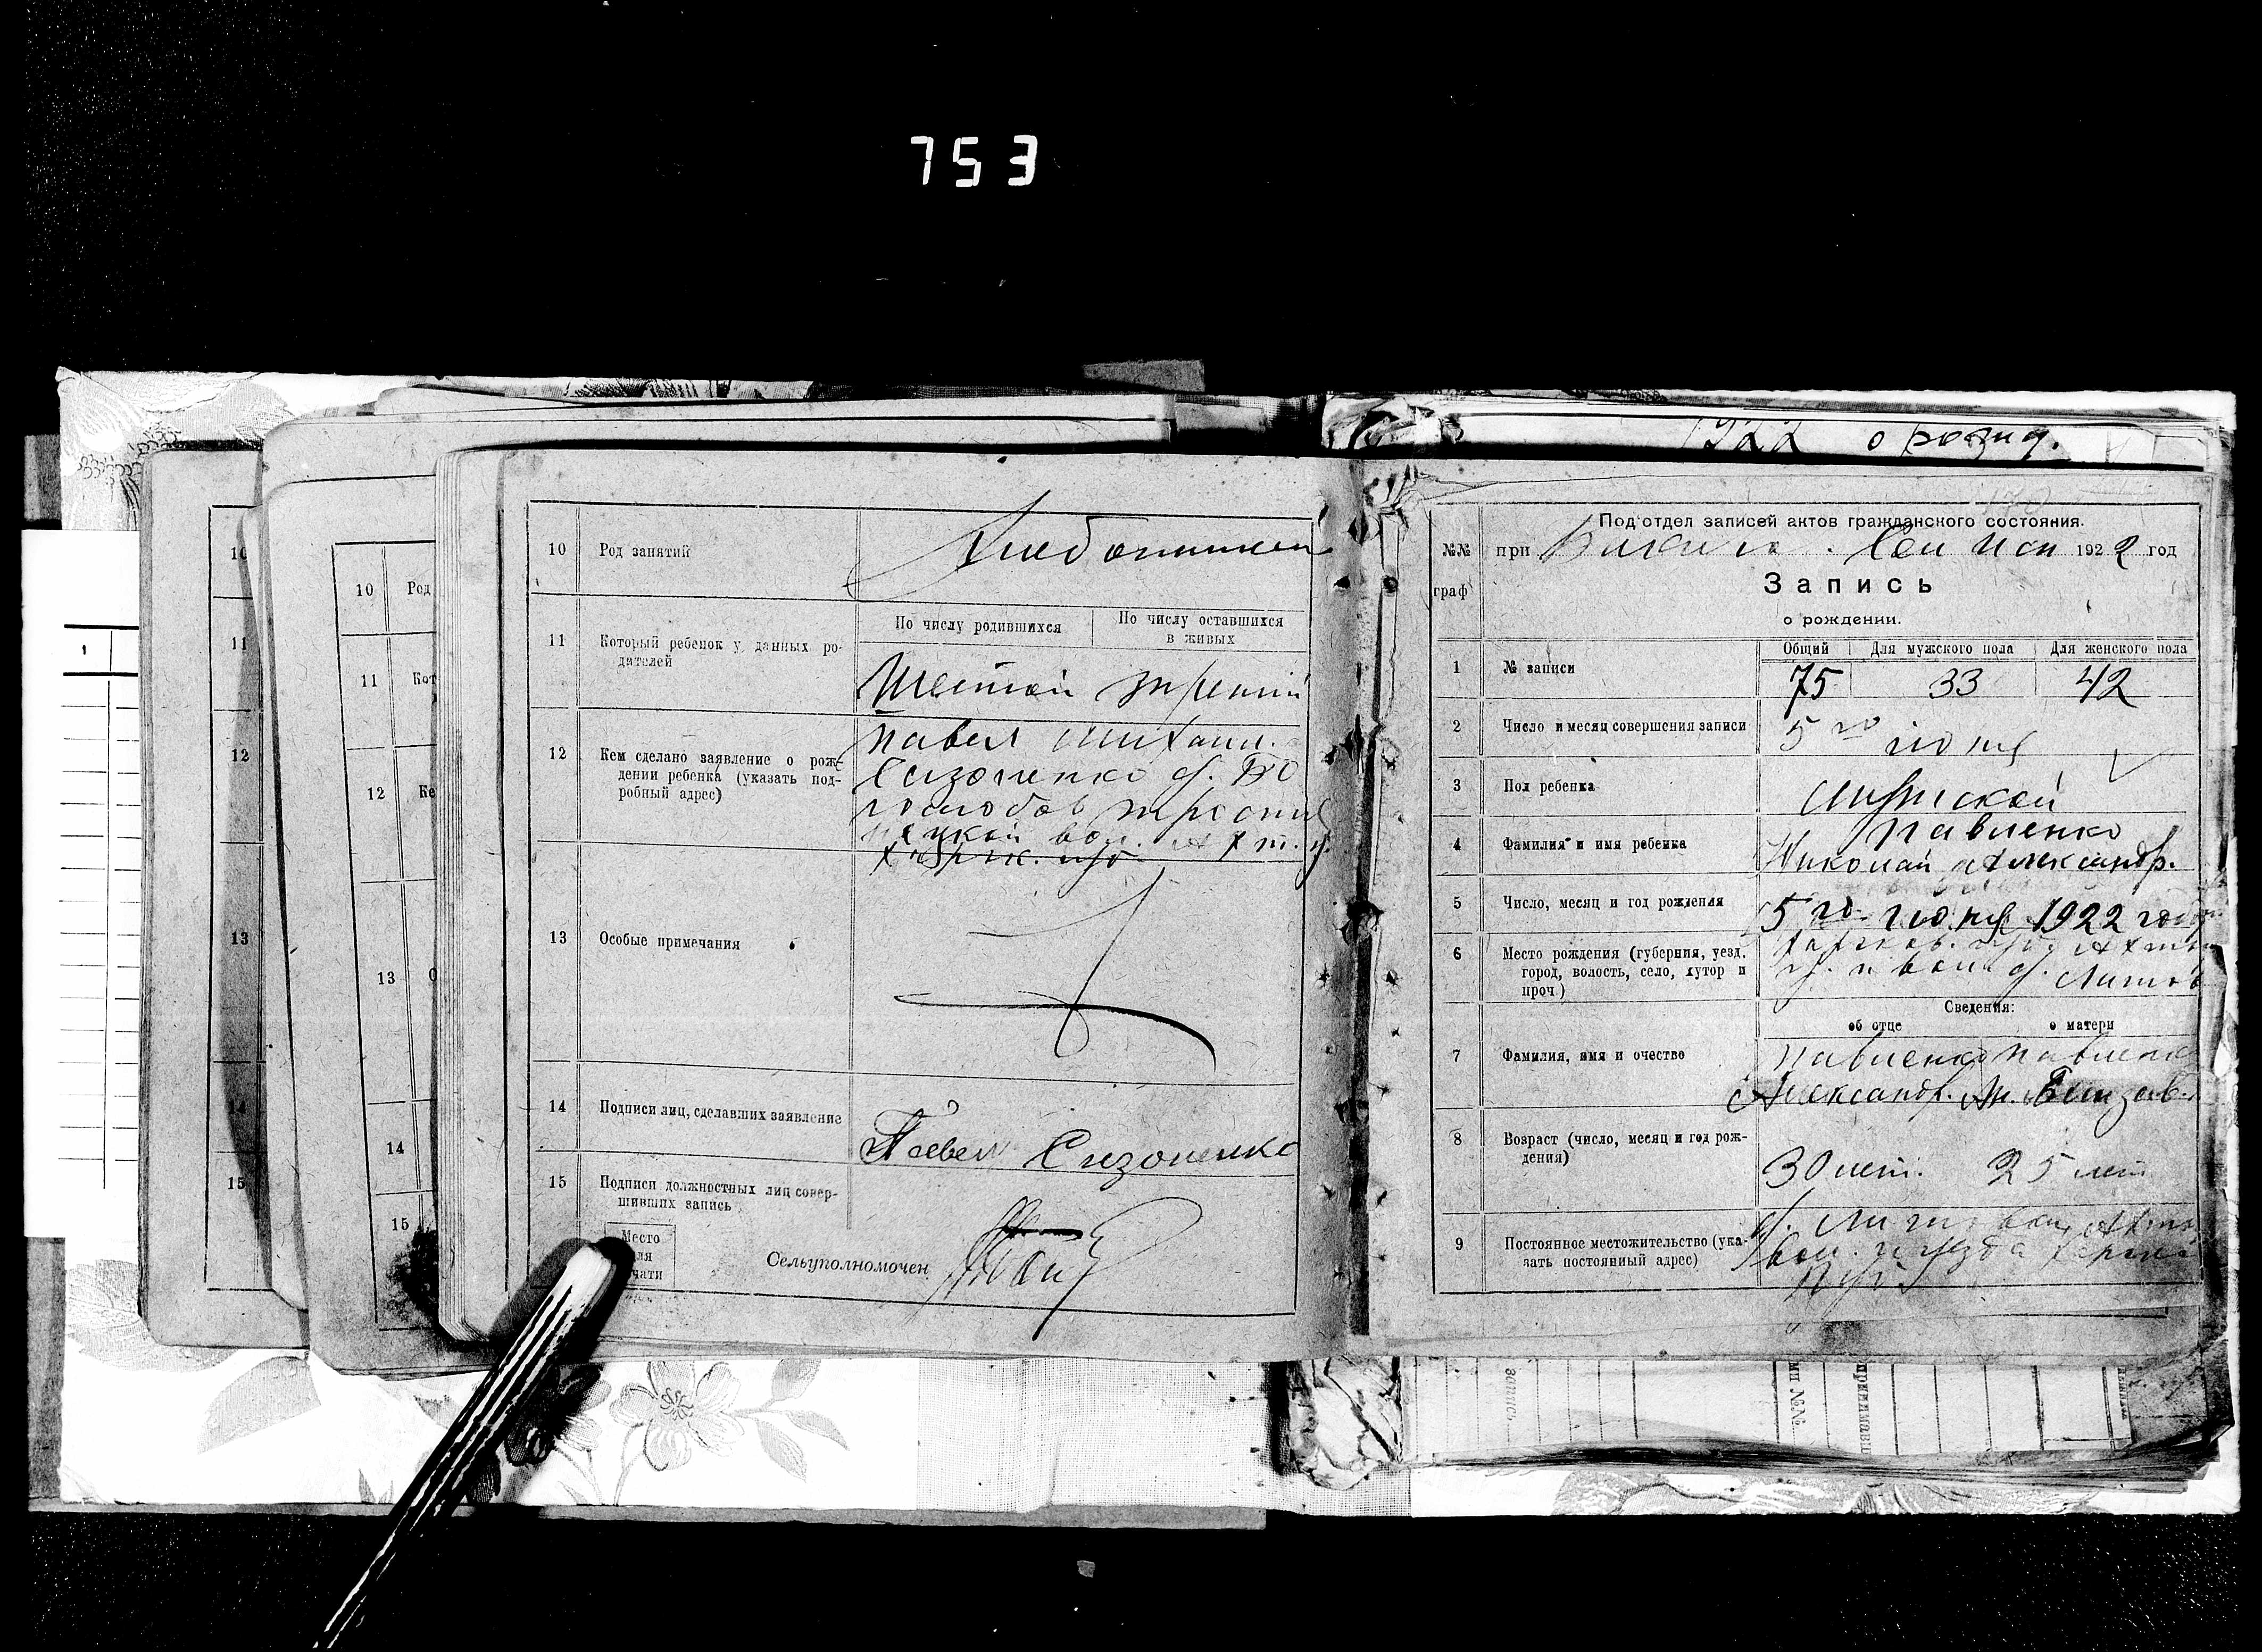 753
1922 о рожд.
10 Род занятий
Хлебопашец
11 Который ребенок у данных ро-
дателей
По числу родившихся
По числу оставшихся
в живых
Шестой третий
12 Кем сделано заявление о рож-
дении ребенка (указать под-
робный адрес)
Павел Михаил.
Сизоненко
вол. Ахт. у.
13 Особые примечания
14 Подписи лиц, сделавших заявление
Павел Сизоненко
15 Подписи должностных лиц совер-
шивших запись
Место
для
печати
Сельуполномочен
10
11
12
13
14
15
10 Род
11 Кот
12 Ке
13 О
14
15
Под'отдел записей актов гражданского состояния.
№№ при 1922 год
граф
Запись
о рождении.
1 № записи
Общий Для мужского пола Для женского пола
75 33 42
2 Число и месяц совершения записи
5 го июня
3 Пол ребенка
мужской
4 Фамилия и имя ребенка
Павленко
Николай Александр.
5 Число, месяц и год рождения
5 го июня 1922 года
6 Место рождения (губерния, уезд,
город, волость, село, хутор и
проч.)
Харьков. губ. Ахтыр
у. и вол. с.
Сведения:
об отце о матери
7 Фамилия, имя и очество
Павленко Павленко
Александр. Ив. Елизав.
8 Возраст (число, месяц и год рож-
дения)
30 лет. 25 лет
9 Постоянное местожительство (ука-
зать постоянный адрес)
вол. и уезда Харьков
губ.